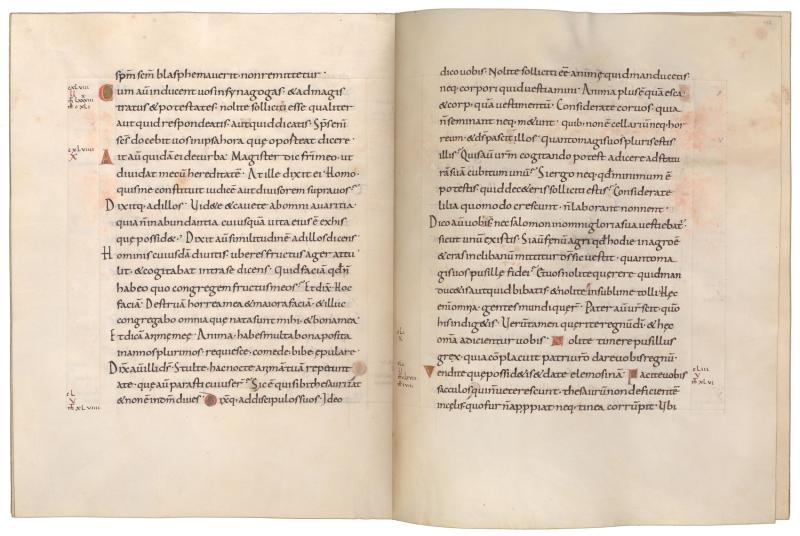 spm scm blasphemaverit non remittetur ·
Cum aũ inducent vos in synagogas & ad magis
tratus & potestates · nolite solliciti esse qualiter
aut quid respondeatis · aut quid dicatis · Sps enĩ
scs docebit vos in ipsa hora que oporteat dicere ·
Ait aũ quidã ei de turba · Magister dic frĩ meo · ut
dividat mecũ hereditatẽ · At ille dixit ei · Homo ·
quis me constituit iudicẽ aut divisorem supra vos ·
Dixitq; ad illos · Vid&e & cavete ab omni avaritia ·
quia ñ in abundantia cuiusquã vita eius ẽ ex his
que possid& · Dixit aũ similitudinẽ ad illos dicens
Hominis cuiusdã divitis · uberes fructus ager attu
lit · & cogitabat intra se dicens · Quid faciã qd ñ
habeo quo congregem fructus meos · Et dix · Hoc
faciã · Destruã horrea mea & maiora faciã · & illuc
congregabo omnia que nata sunt mihi · & bona mea ·
Et dicã anĩme meẹ · Anima · habes multa bona posita
in annos plurimos · requiesce · comede · bibe · epulare ·
Dix aũ illi ds · Stulte · hac nocte anĩmã tuã repetunt
a te · que aũ parasti cuius er̃ · Sic ẽ qui sibi thesaurizat
& non ẽ in dm dives · Dixq; ad discipulos suos · Ideo
cxlviii
cxlviiii
X
cL
V
m̃ xLviiii
dico vobis · Nolite solliciti eẽ animẹ quid manducetis
neq; corpori quid vestiamini · Anima plus ẽ quã esca ·
& corp; quã vestimentũ · Considerate corvos · quia
ñ seminant neq; m&unt · quib; non ẽ cellariũ neq; hor
reum · & ds pascit illos · Quanto magis vos pluris estis
illis · Quis aũ vrm cogitando potest adicere ad statu
rã suã cubitum unũ · Si ergo neq; qd minimum ẽ
potestis · quid de c&eris solliciti estis · Considerate
lilia quomodo crescunt · ñ laborant non nent ·
Dico aũ vobis · nec salomon in omni gloria sua vestiebat̃
sicut unũ ex istis · Si aũ fenũ agri qd hodie in agro ẽ
& cras in clibanũ mittitur · ds sic vestit · quanto ma
gis vos pusillẹ fidei · Et vos nolite querere quid man
duc&is aut quid bibatis · & nolite in sublime tolli · Hẹc
enĩ omnia gentes mundi querunt · Pater aũ vr scit · quo
his indig&is · Verũtamen querite regnũ di · & hẹc
omã adicientur vobis · Nolite timere pusillus
grex · quia cõplacuit patri vrõ dare vobis regnũ ·
Vendite que possid&is & date elemosinã · Facite vobis
sacculos qui ñ veterescunt · thesaurũ non deficientẽ
in celis · quo fur ñ appropiat neq; tinea corrũpit · Ubi
cLiii
V
m̃ xLvi